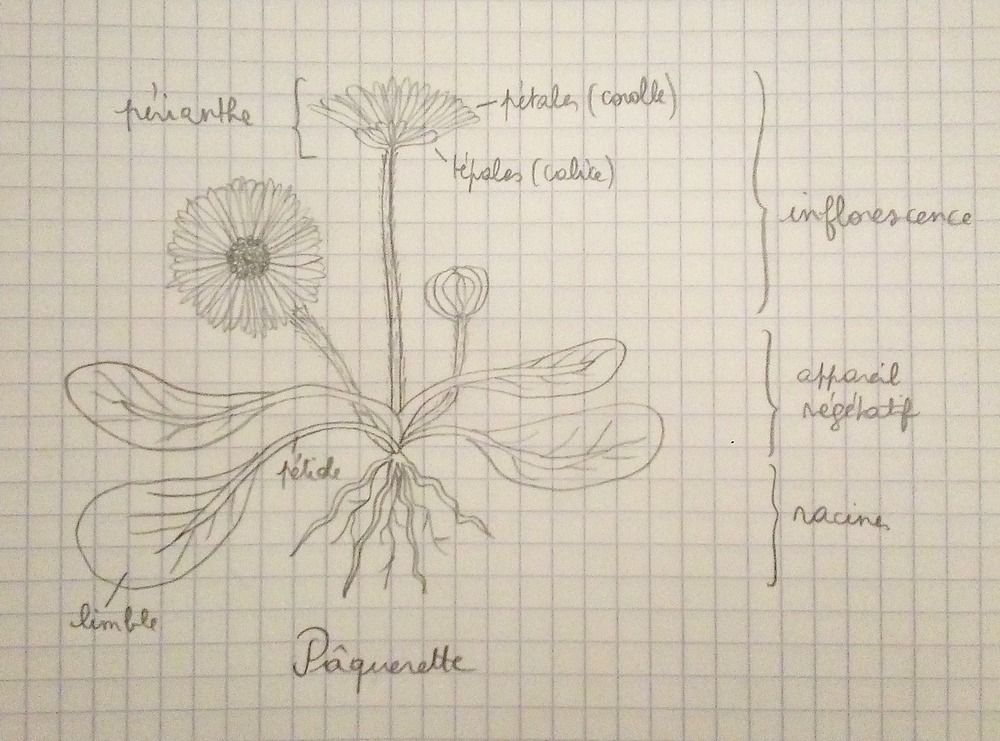 périanthe
pétales (corolle)
tépales (calice)
inflorescence
appareil
végétatif
pétiole
racines
limble
Pâquerette